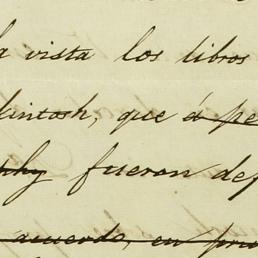 a vista los libros
Kintosh, que á pe
phy fueron def
acuerdo, en pro